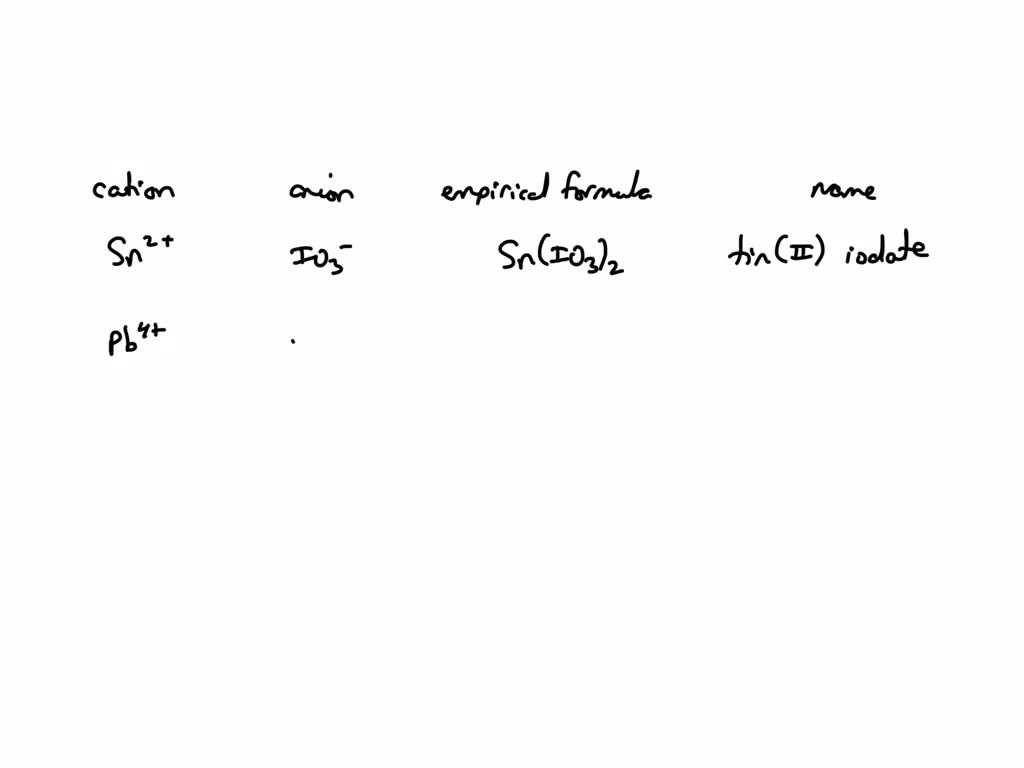 cation anion empirical formula name
Sn²⁺ IO₃⁻ Sn(IO₃)₂ tin(II) iodate
Pb⁴⁺